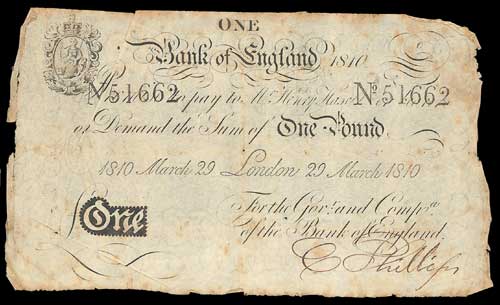 ONE
Bank of England 1810
to pay to Mr. Henry Hase
No. 51662 No. 51662
on Demand the Sum of One Pound
1810 March 29 London 29 March 1810
For the Govr. and Compa.
One
of the Bank of England.
C Phillips